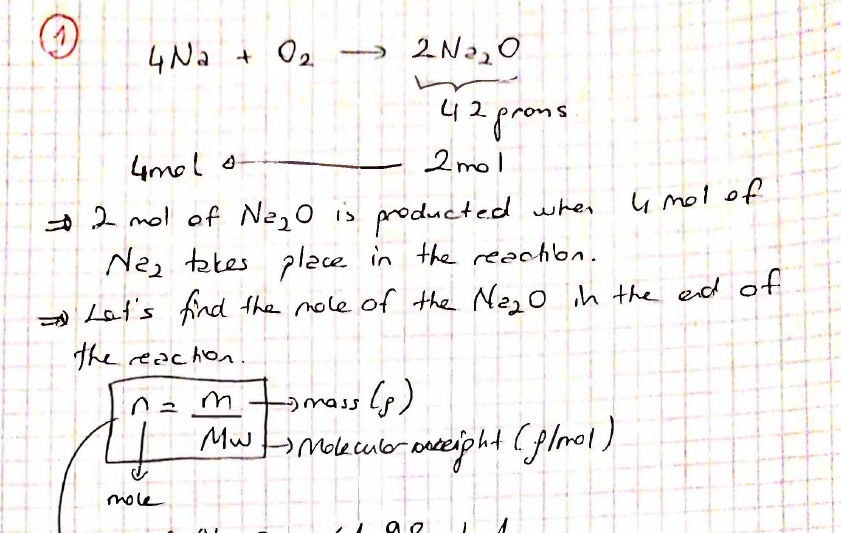 1
4Na + O₂ → 2Na₂O
42 grams
4mol ← 2mol
⇒ 2 mol of Na₂O is producted when 4 mol of
Na₂ takes place in the reaction.
⇒ Let's find the mole of the Na₂O in the end of
the reaction.
n = m/Mw
→ mass (g)
→ Molecular weight (g/mol)
mole